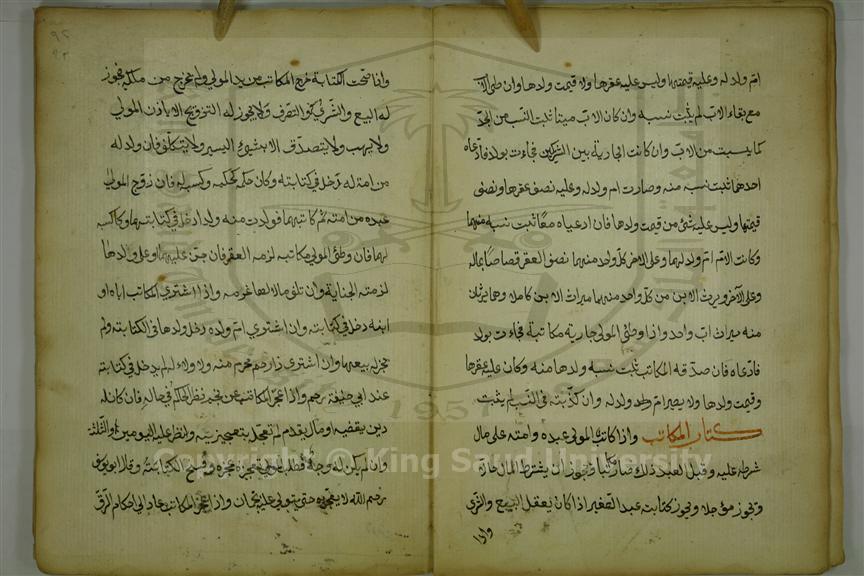 ام ولد له وعليه قيمتها وليس عليه عقرها ولا قيمت ولدها وان وطئ اب الاب
مع بقاء الاب لم يثبت نسبه وان كان الاب ميتا ثبت النسب من الجد
كما يسبت من الاب وان كانت الجارية بين الشركين فجاءت بولد فادعاه
احدهما ثبت نسبه منه وصارت ام ولد له وعليه نصف عقرها ونصف
قيمتها وليس عليه شئ من قيمت ولدها فان ادعياه معا ثبت نسبه منهما
وكانت الام ام ولد لهما وعلى كل واحد منهما نصف العقر قصاصا بماله
وعلى الآخر ويرث الابن من كل واحد منهما ميراث الابن كاملا وهما يرثان
منه ميراث اب واحد واذا وطئ المولى جارية مكاتبة فجاءت بولد
فادعاه فان صدقه المكاتب ثبت نسبه ولدها منه وكان عليه عقرها
وقيمت ولدها ولا يصير ام ولد له وان كذبته في النسب لم يثبت
كتاب المكاتب واذا كاتب المولى عبده او امته على مال
شرطه عليه وقبل العبد ذلك صار مكاتبا ويجوز ان يشترط المال حالا
ويجوز مؤجلا ويجوز كتابته عبد الصغير اذا كان يعقل البيع والشرى
واذا
٩٢
واذا صحت الكتابة خرج المكاتب من يد المولى ولم يخرج من ملكه فيجوز
له البيع والشرى والتصرف ولا يجوز له التزويج الا باذن المولى
ولا يهب ولا يتصدق الا بشيء اليسير ولا يتكلف فان ولد له
من امته له دخل في كتابته وكان حكمه كحكمه وكسبه له فان زوج المولى
عبده من امته ثم كاتبهما فولدت منه ولدا دخل في كتابتهما وكان كسبه
لهما فان وطئ المولى مكاتبه لزمه العقر فان جنى عليها او على ولدها
لزمته الجناية وان تلف مالا لها غرمه واذا اشترى المكاتب اباه او
ابنه دخل في كتابته وان اشترى ام ولده دخل ولدها في الكتابته ولم
تجز له بيعها وان اشترى ذا رحم محرم منه ولا ولاء له لم يدخل في كتابته
عند ابي حنيفة رحمه واذا عجز المكاتب عن نجم نظر الحاكم في حاله فان كان له
دين يقضيه او مال يقدم لم تعجل بتعجيزه وانظر عليه اليومين او الثلثة
وان لم يكن له وجه فطلب المولى تعجيزه عجزه وفسخ الكتابته وقال ابو يوسف
رحمه الله لا يعجزه حتى يتوالى عليه نجمان واذا عجز المكاتب عاد الى احكام الرق
Copyright © King Saud University
1957